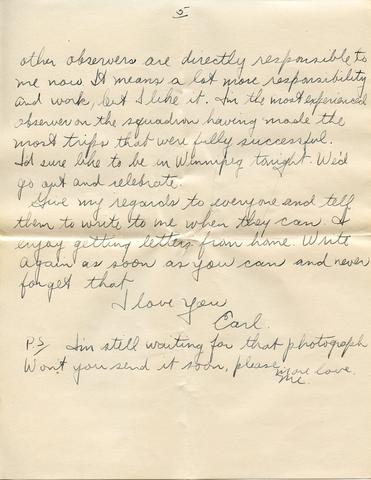 5
other observers are directly responsible to
me now It means a lot more responsibility
and work, but I like it. I'm the most experienced
observer on the squadron having made the
most trips that were fully successful.
I'd sure like to be in Winnipeg tonight. We'd
go out and celebrate.
Give my regards to everyone and tell
them to write to me when they can. I
enjoy getting letters from home. Write
again as soon as you can and never
forget that
I love you
Earl.
P.S. I'm still waiting for that photograph
Won't you send it soon, please
More love.
Me.